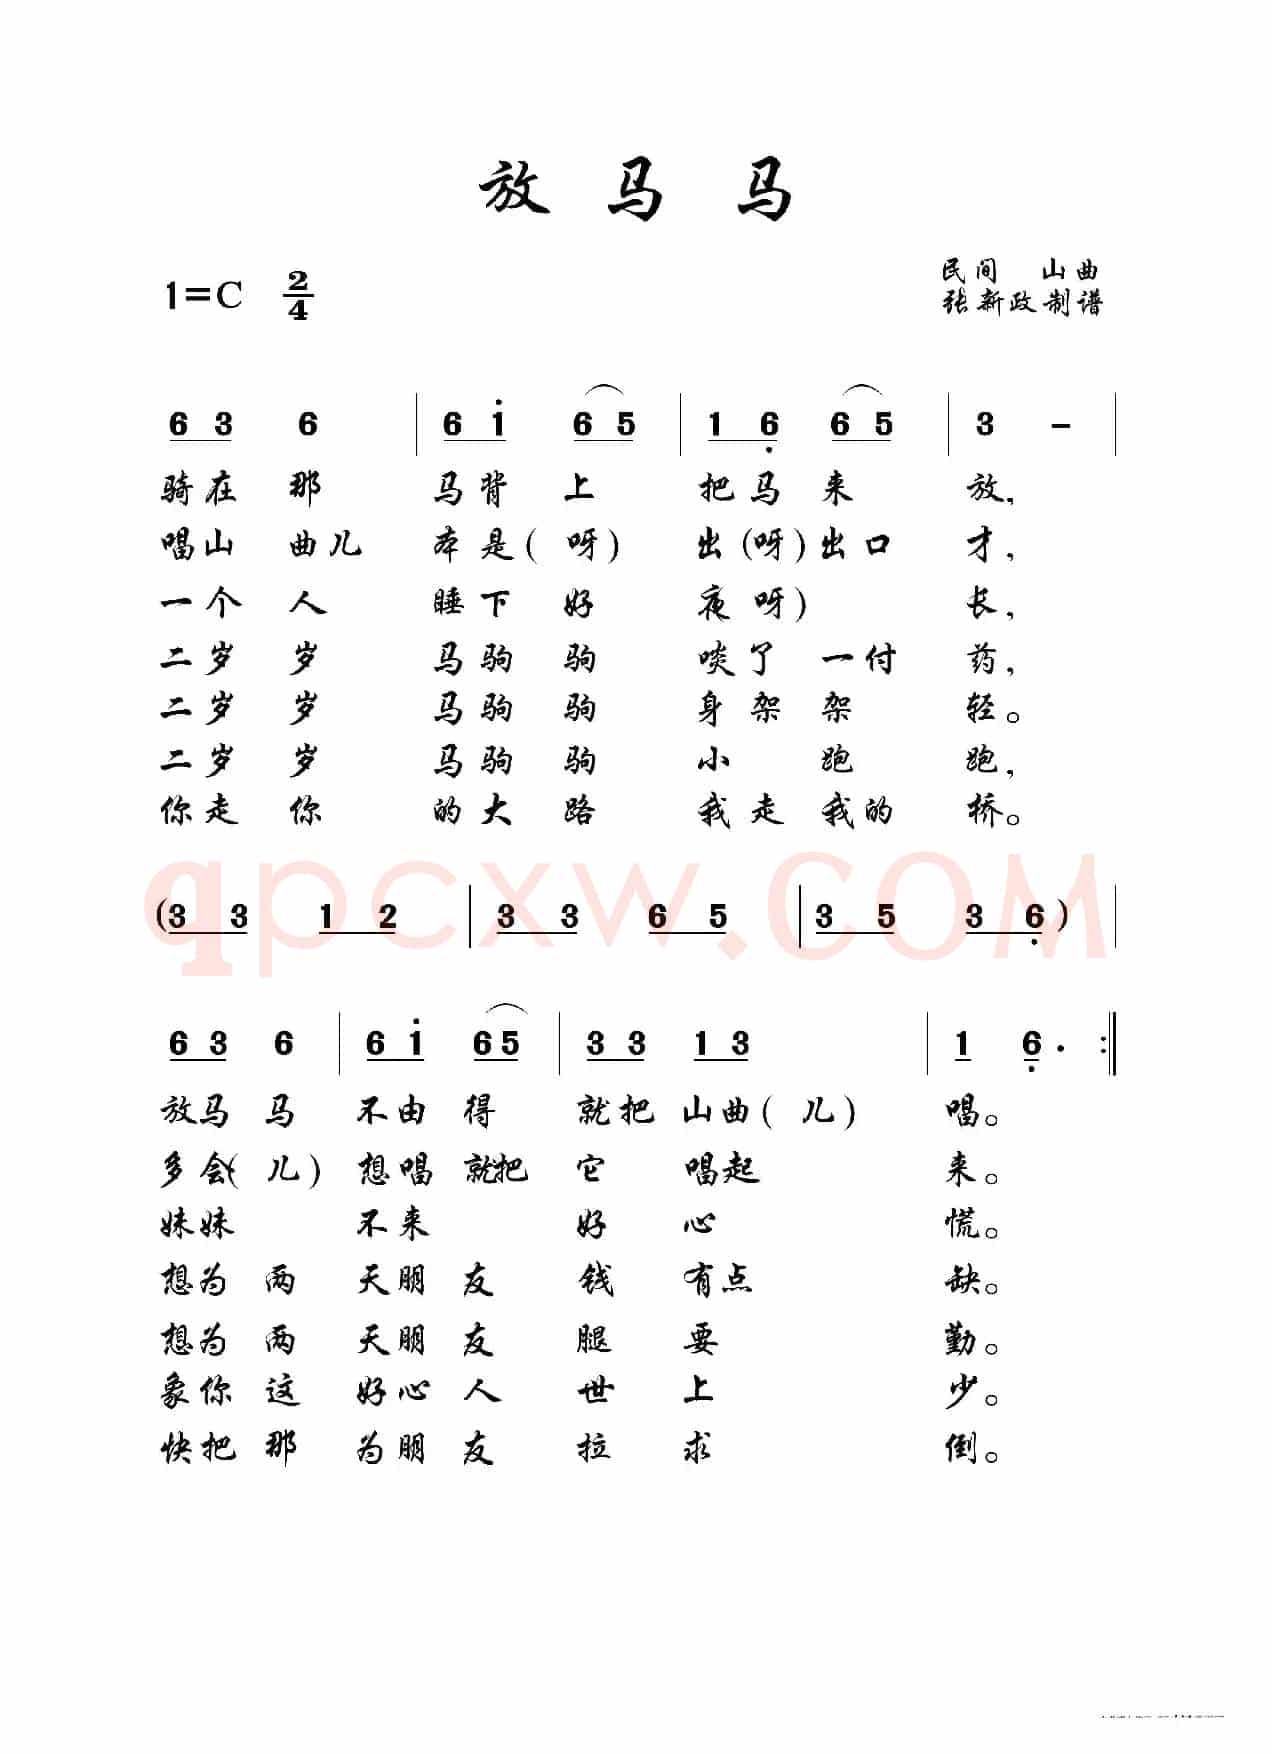 放马马
1=C 2/4
民间 山曲
张新政制谱
6 3 6 | 6 1 6 5 | 1 6 6 5 | 3 - |
骑在那 马背上 把马来 放,
唱山曲儿 本是(呀) 出(呀)出口 才,
一个人 睡下好 夜呀) 长,
二岁岁 马驹驹 啖了一付 药,
二岁岁 马驹驹 身架架 轻。
二岁岁 马驹驹 小跑 跑,
你走你 的大路 我走我的 桥。
(3 3 1 2 | 3 3 6 5 | 3 5 3 6) |
6 3 6 | 6 1 6 5 | 3 3 1 3 | 1 6 · :|
放马马 不由得 就把山曲(儿) 唱。
多会(儿) 想唱就把 它唱起 来。
妹妹 不来 好心 慌。
想为两 天朋友 钱有点 缺。
想为两 天朋友 腿要 勤。
象你这 好心人 世上 少。
快把那 为朋友 拉求 倒。
qpcxw.COM